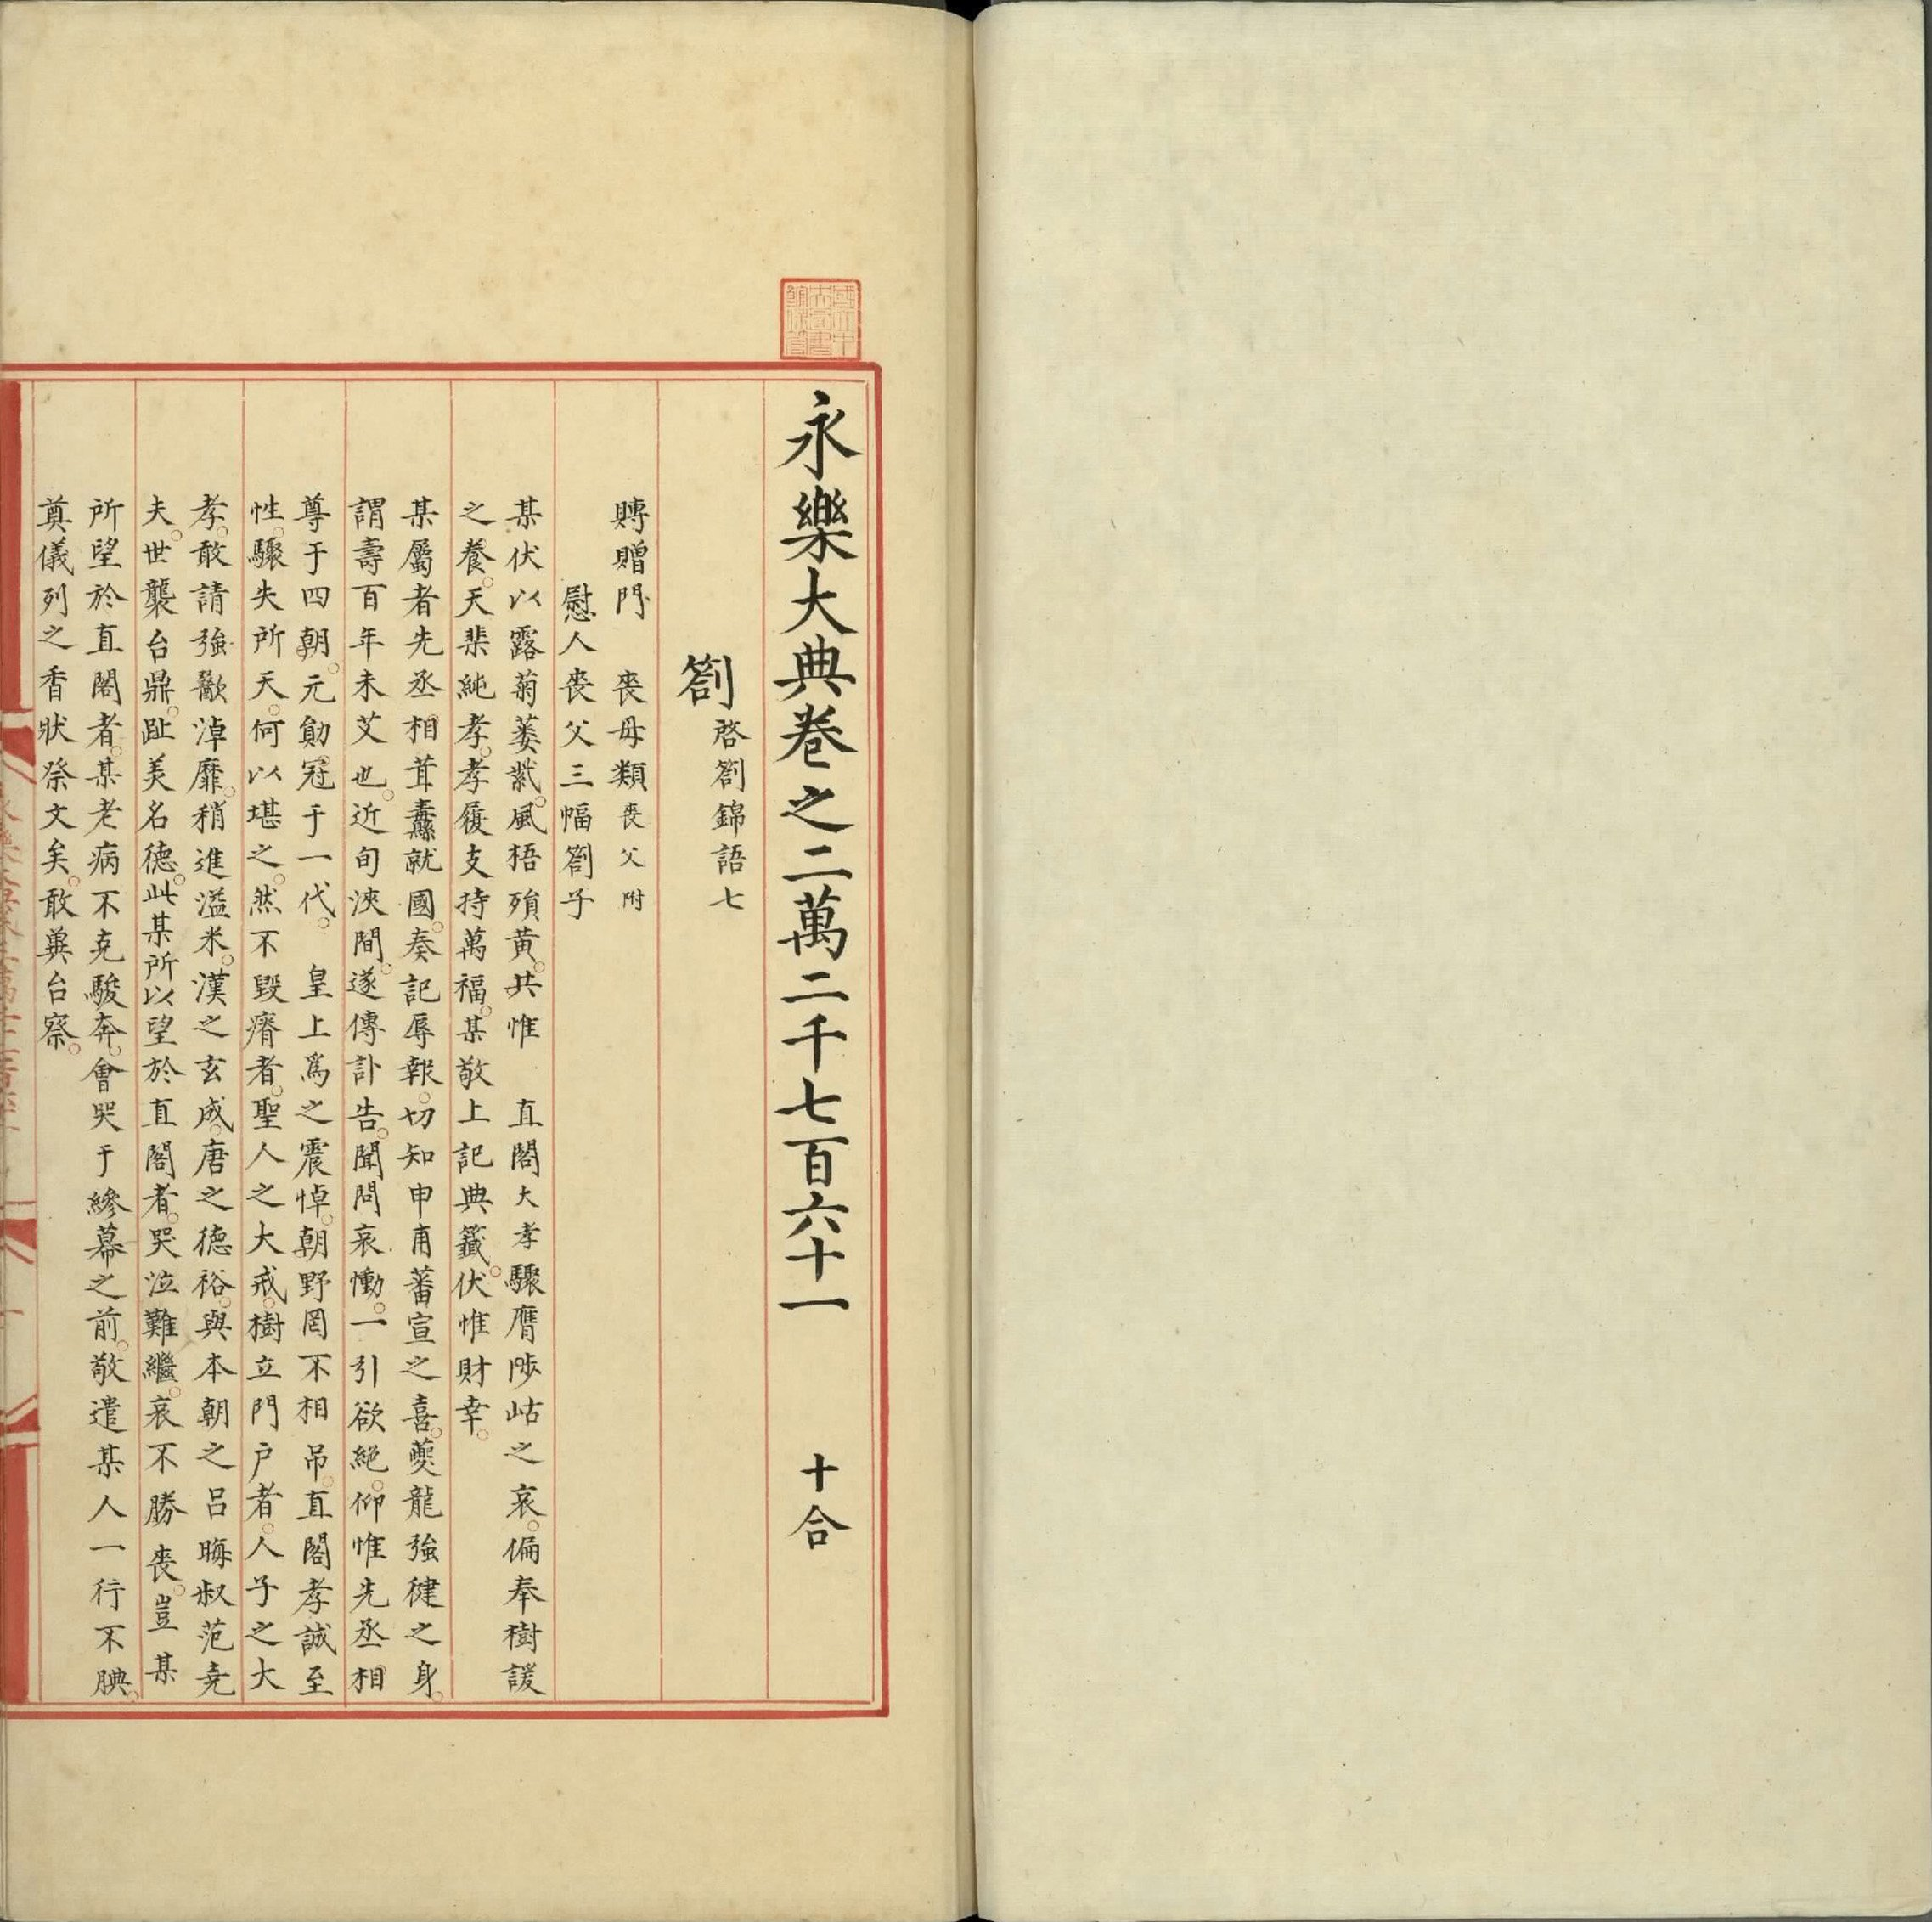 永樂大典卷之二萬二千七百六十一　十合
劄 啓劄錦語七
賻贈門　喪母類 喪父附
慰人喪父三幅劄子
某伏以露菊萎紫。風梧殞黄。共惟　直閣大孝驟膺陟岵之哀。偏奉樹諼
之養。天棐純孝。孝履支持萬福。某敬上記典籤。伏惟財幸。
某屬者先丞相茸纛就國。奏記辱報。切知申甫蕃宣之喜。夔龍強健之身。
謂壽百年未艾也。近旬浹間。遂傳訃告。聞問哀慟。一引欲絶。仰惟先丞相
尊于四朝。元勛冠于一代。　皇上爲之震悼。朝野罔不相吊。直閣孝誠至
性。驟失所天。何以堪之。然不毁瘠者。聖人之大戒。樹立門户者。人子之大
孝。敢請強歠淖靡。稍進溢米。漢之玄成。唐之德裕。與本朝之呂晦叔范堯
夫。世襲台鼎。趾美名德。此某所以望於直閣者。哭泣難繼。哀不勝喪。豈某
所望於直閣者。某老病不克駿奔。會哭于縿幕之前。敬遣某人一行不腆。
奠儀列之香狀祭文矣。敢冀台察。